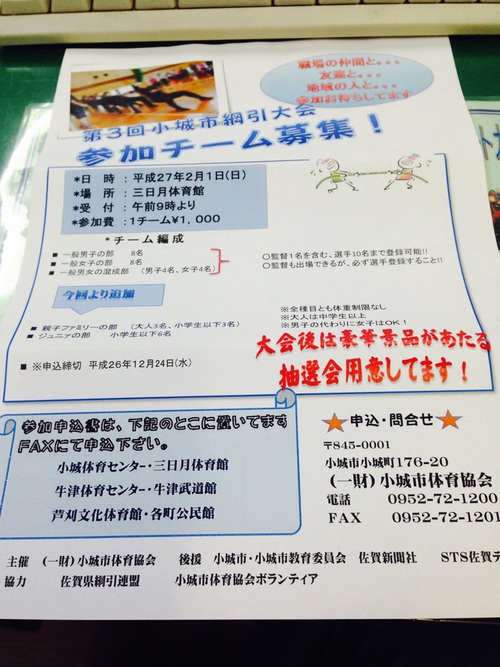 職場の仲間と。。。
友達と。。。
地域の人と。。。
参加お待ちしてます
第3回小城市綱引大会
参加チーム募集！
*日　時：平成27年2月1日(日)
*場　所：三日月体育館
*受　付：午前9時より
*参加費：1チーム¥1,000
*チーム編成
■ 一般男子の部　8名
■ 一般女子の部　8名
■ 一般男女の混成部　(男子4名、女子4名)
○監督1名を含む、選手10名まで登録可能!!
○監督も出場できるが、必ず選手登録すること!!
今回より追加
■ 親子ファミリーの部　(大人3名、小学生以下3名)
■ ジュニアの部　小学生以下6名
※全種目とも体重制限なし
※大人は中学生以上
※男子の代わりに女子はOK！
大会後は豪華景品があたる
抽選会用意してます！
■ ※申込締切　平成26年12月24日(水)
参加申込書は、下記のとこに置いてます
FAXにて申込下さい。
小城体育センター・三日月体育館
牛津体育センター・牛津武道館
芦刈文化体育館・各町公民館
★申込・問合せ★
〒845-0001
小城市小城町176-20
(一財)小城市体育協会
電話　0952-72-1200
FAX　0952-72-1201
主催　(一財)小城市体育協会　後援　小城市・小城市教育委員会　佐賀新聞社　STSサガテ
協力　佐賀県綱引連盟　小城市体育協会ボランティア